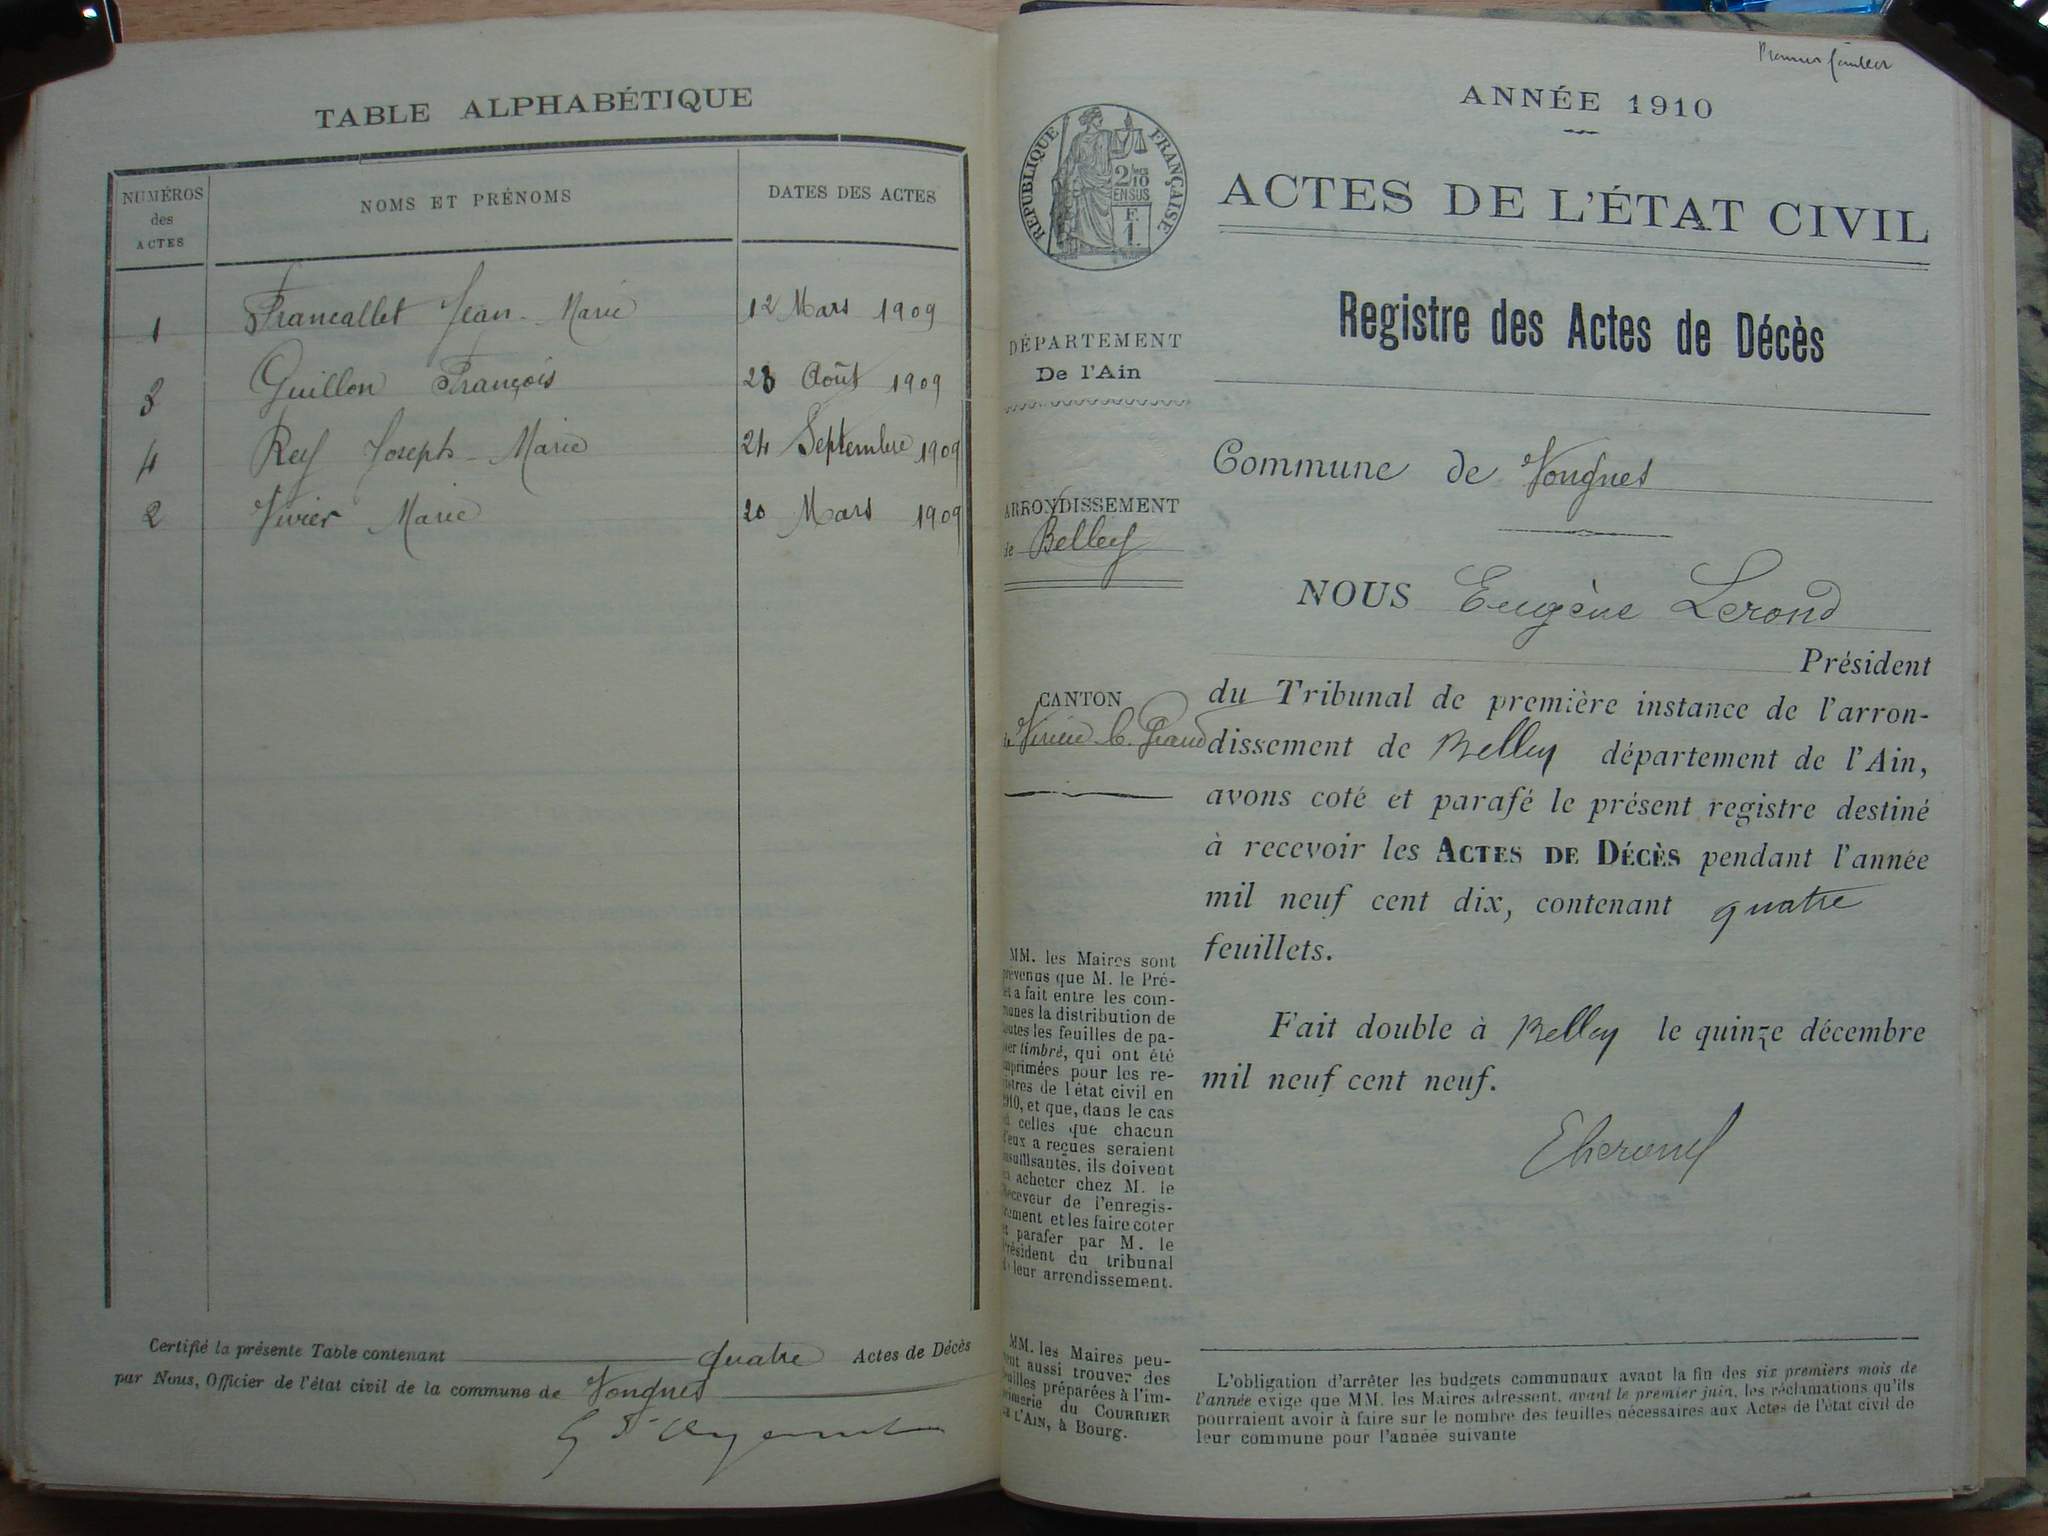 TABLE ALPHABÉTIQUE
NUMÉROS des ACTES NOMS ET PRÉNOMS DATES DES ACTES
1 Francallet Jean-Marie 12 Mars 1909
3 Guillon François 28 Août 1909
4 Rey Joseph-Marie 24 Septembre 1909
2 Vivier Marie 20 Mars 1909
Certifié la présente Table contenant quatre Actes de Décès
par Nous, Officier de l'état civil de la commune de Vongnes
Premier feuillet
ANNÉE 1910
RÉPUBLIQUE FRANÇAISE
2/10
EN SUS
F.
1.
ACTES DE L'ÉTAT CIVIL
Registre des Actes de Décès
DÉPARTEMENT
De l'Ain
ARRONDISSEMENT
de Belley
CANTON
de Virieu-l-Grand
MM. les Maires sont
prévenus que M. le Pré-
fet a fait entre les com-
munes la distribution de
toutes les feuilles de pa-
pier timbré, qui ont été
imprimées pour les re-
gistres de l'état civil en
1910, et que, dans le cas
où celles que chacun
d'eux a reçues seraient
insuffisantes, ils doivent
en acheter chez M. le
Receveur de l'enregis-
trement et les faire coter
et parafer par M. le
Président du tribunal
de leur arrondissement.
MM. les Maires peu-
vent aussi trouver des
feuilles préparées à l'im-
primerie du COURRIER
DE L'AIN, à Bourg.
Commune de Vongnes
NOUS Eugène Lerond
Président
du Tribunal de première instance de l'arron-
dissement de Belley département de l'Ain,
avons coté et parafé le présent registre destiné
à recevoir les ACTES DE DÉCÈS pendant l'année
mil neuf cent dix, contenant quatre
feuillets.
Fait double à Belley le quinze décembre
mil neuf cent neuf.
L'obligation d'arrêter les budgets communaux avant la fin des six premiers mois de
l'année exige que MM. les Maires adressent, avant le premier juin, les réclamations qu'ils
pourraient avoir à faire sur le nombre des feuilles nécessaires aux Actes de l'état civil de
leur commune pour l'année suivante